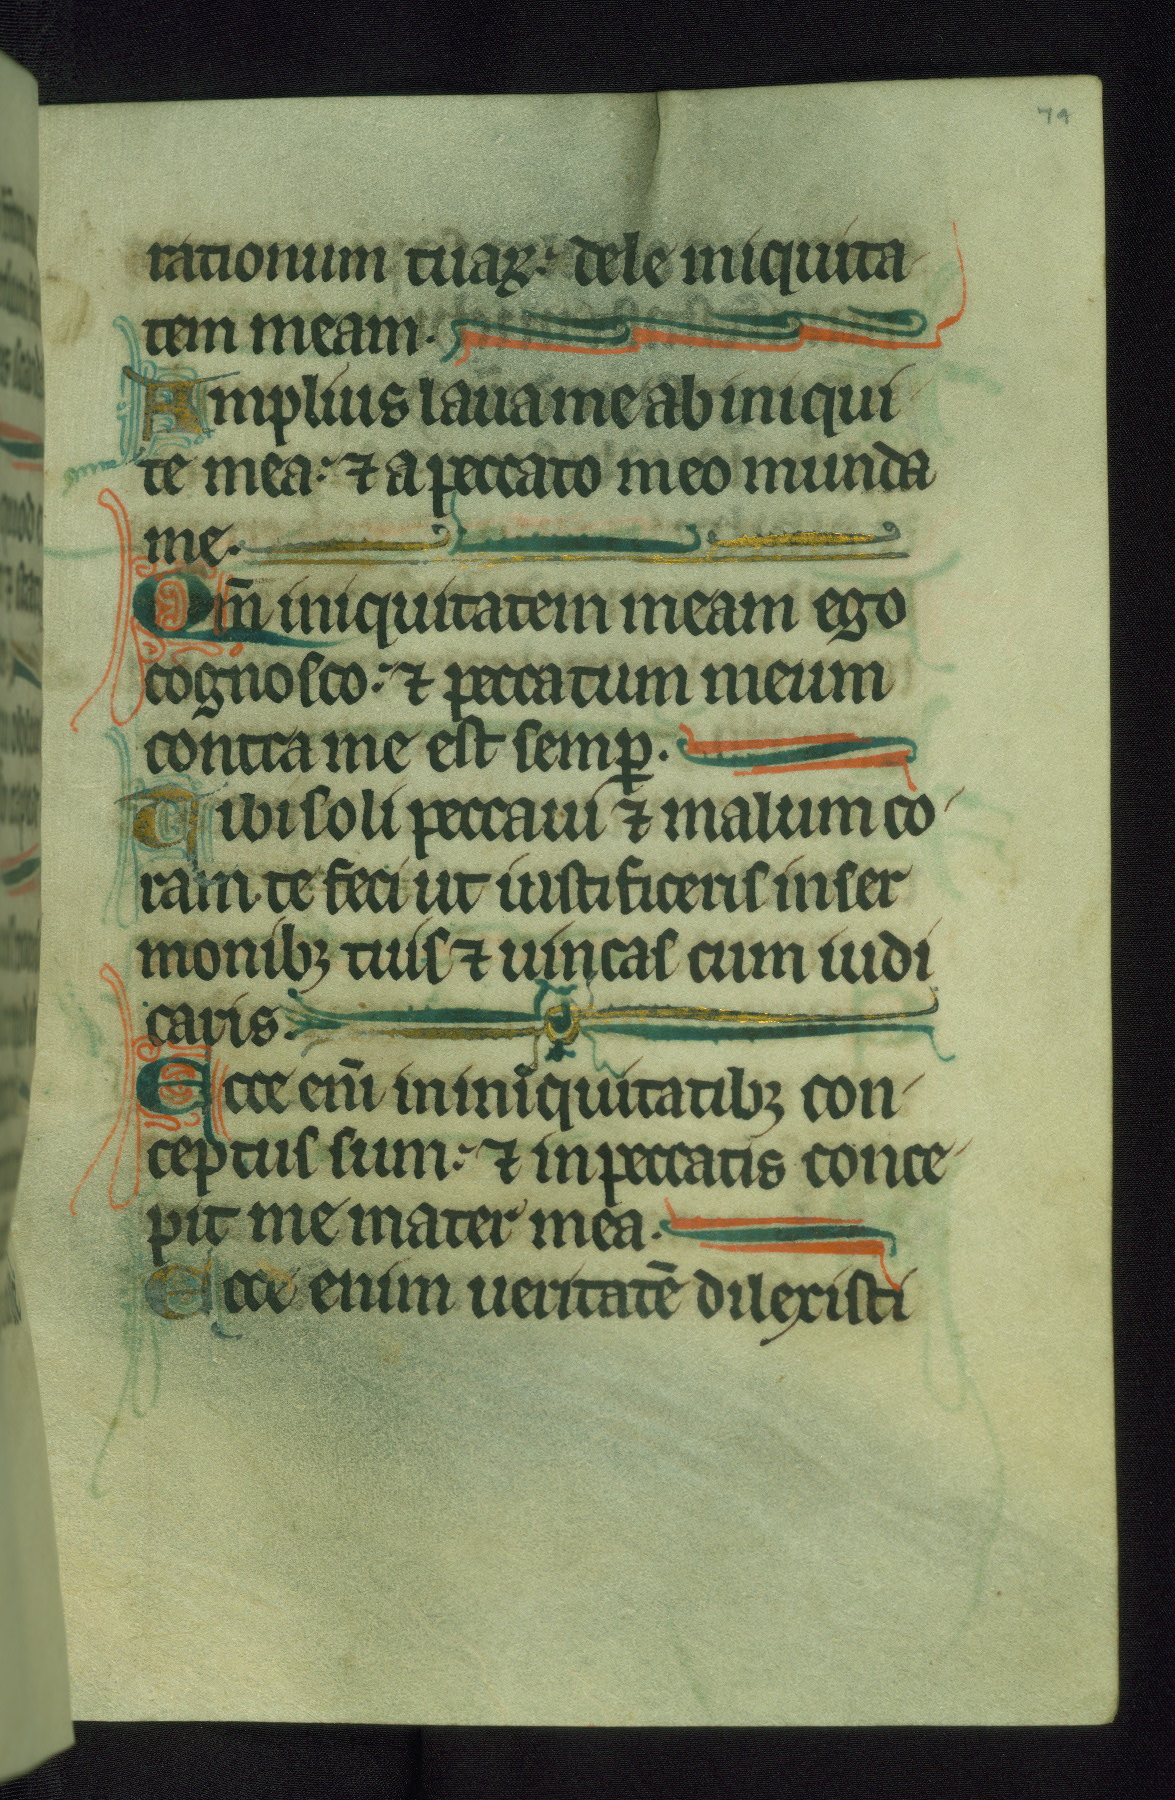 74
rationum tuaꝝ: dele iniquita
tem meam.
Amplius laua me ab iniqui
te mea: ⁊ a peccato meo munda
me.
Qm̄ iniquitatem meam ego
cognosco: ⁊ peccatum meum
contra me est semꝑ.
Tibi soli peccaui ⁊ malum co
ram te feci ut iustificeris in ser
monibꝫ tuis ⁊ uincas cum iudi
caris.
Ecce em̄ in iniquitatibꝫ con
ceptus sum: ⁊ in peccatis conce
pit me mater mea.
Ecce enim ueritatē dilexisti